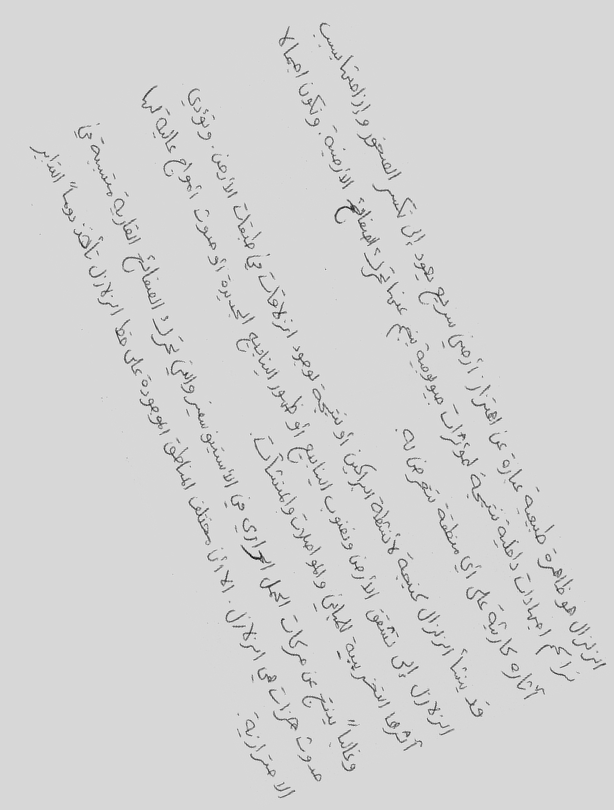 الزلزال هو ظاهرة طبيعية عبارة عن اهتزاز أرضي سريع يعود إلى تكسر الصخور وإزاحتها بسبب
تراكم اجهادات داخلية نتيجة لمؤثرات جيولوجية ينجم عنها تحرك الصفائح الأرضية. وتكون اجمالا
آثاره كارثية على أي منطقة تتعرض له.
قد ينشأ الزلزال كنتيجة لأنشطة البراكين أو نتيجة لوجود انزلاقات في طبقات الأرض. وتؤدي
الزلازل إلى تشقق الأرض ونضوب الينابيع أو ظهور الينابيع الجديدة أو حدوث أمواج عالية لها
آثارها التخريبية للمباني والمواصلات والمنشآت.
وغالباً ينتج عن حركات الحمل الحراري في الأستينوسفير والتي تحرك الصفائح القارية متسببة في
حدوث هزات هي الزلازل. الا أن مختلف المناطق الموجودة على خط الزلازل تأخذ دوماً التدابير
الاحترازية.